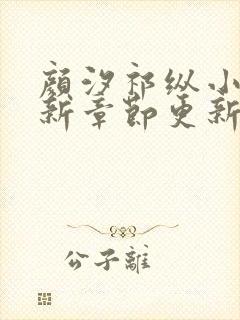 顏汐祁纵小
新章節更新
公子離